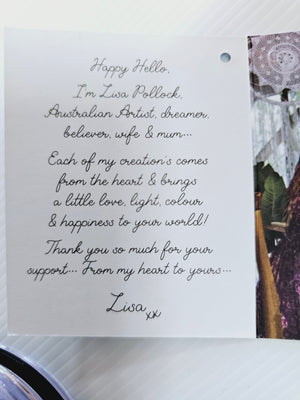 Happy Hello,
I'm Lisa Pollock,
Australian Artist, dreamer,
believer, wife & mum...
Each of my creation's comes
from the heart & brings
a little love, light, colour
& happiness to your world!
Thank you so much for your
support... From my heart to yours...
Lisa xx